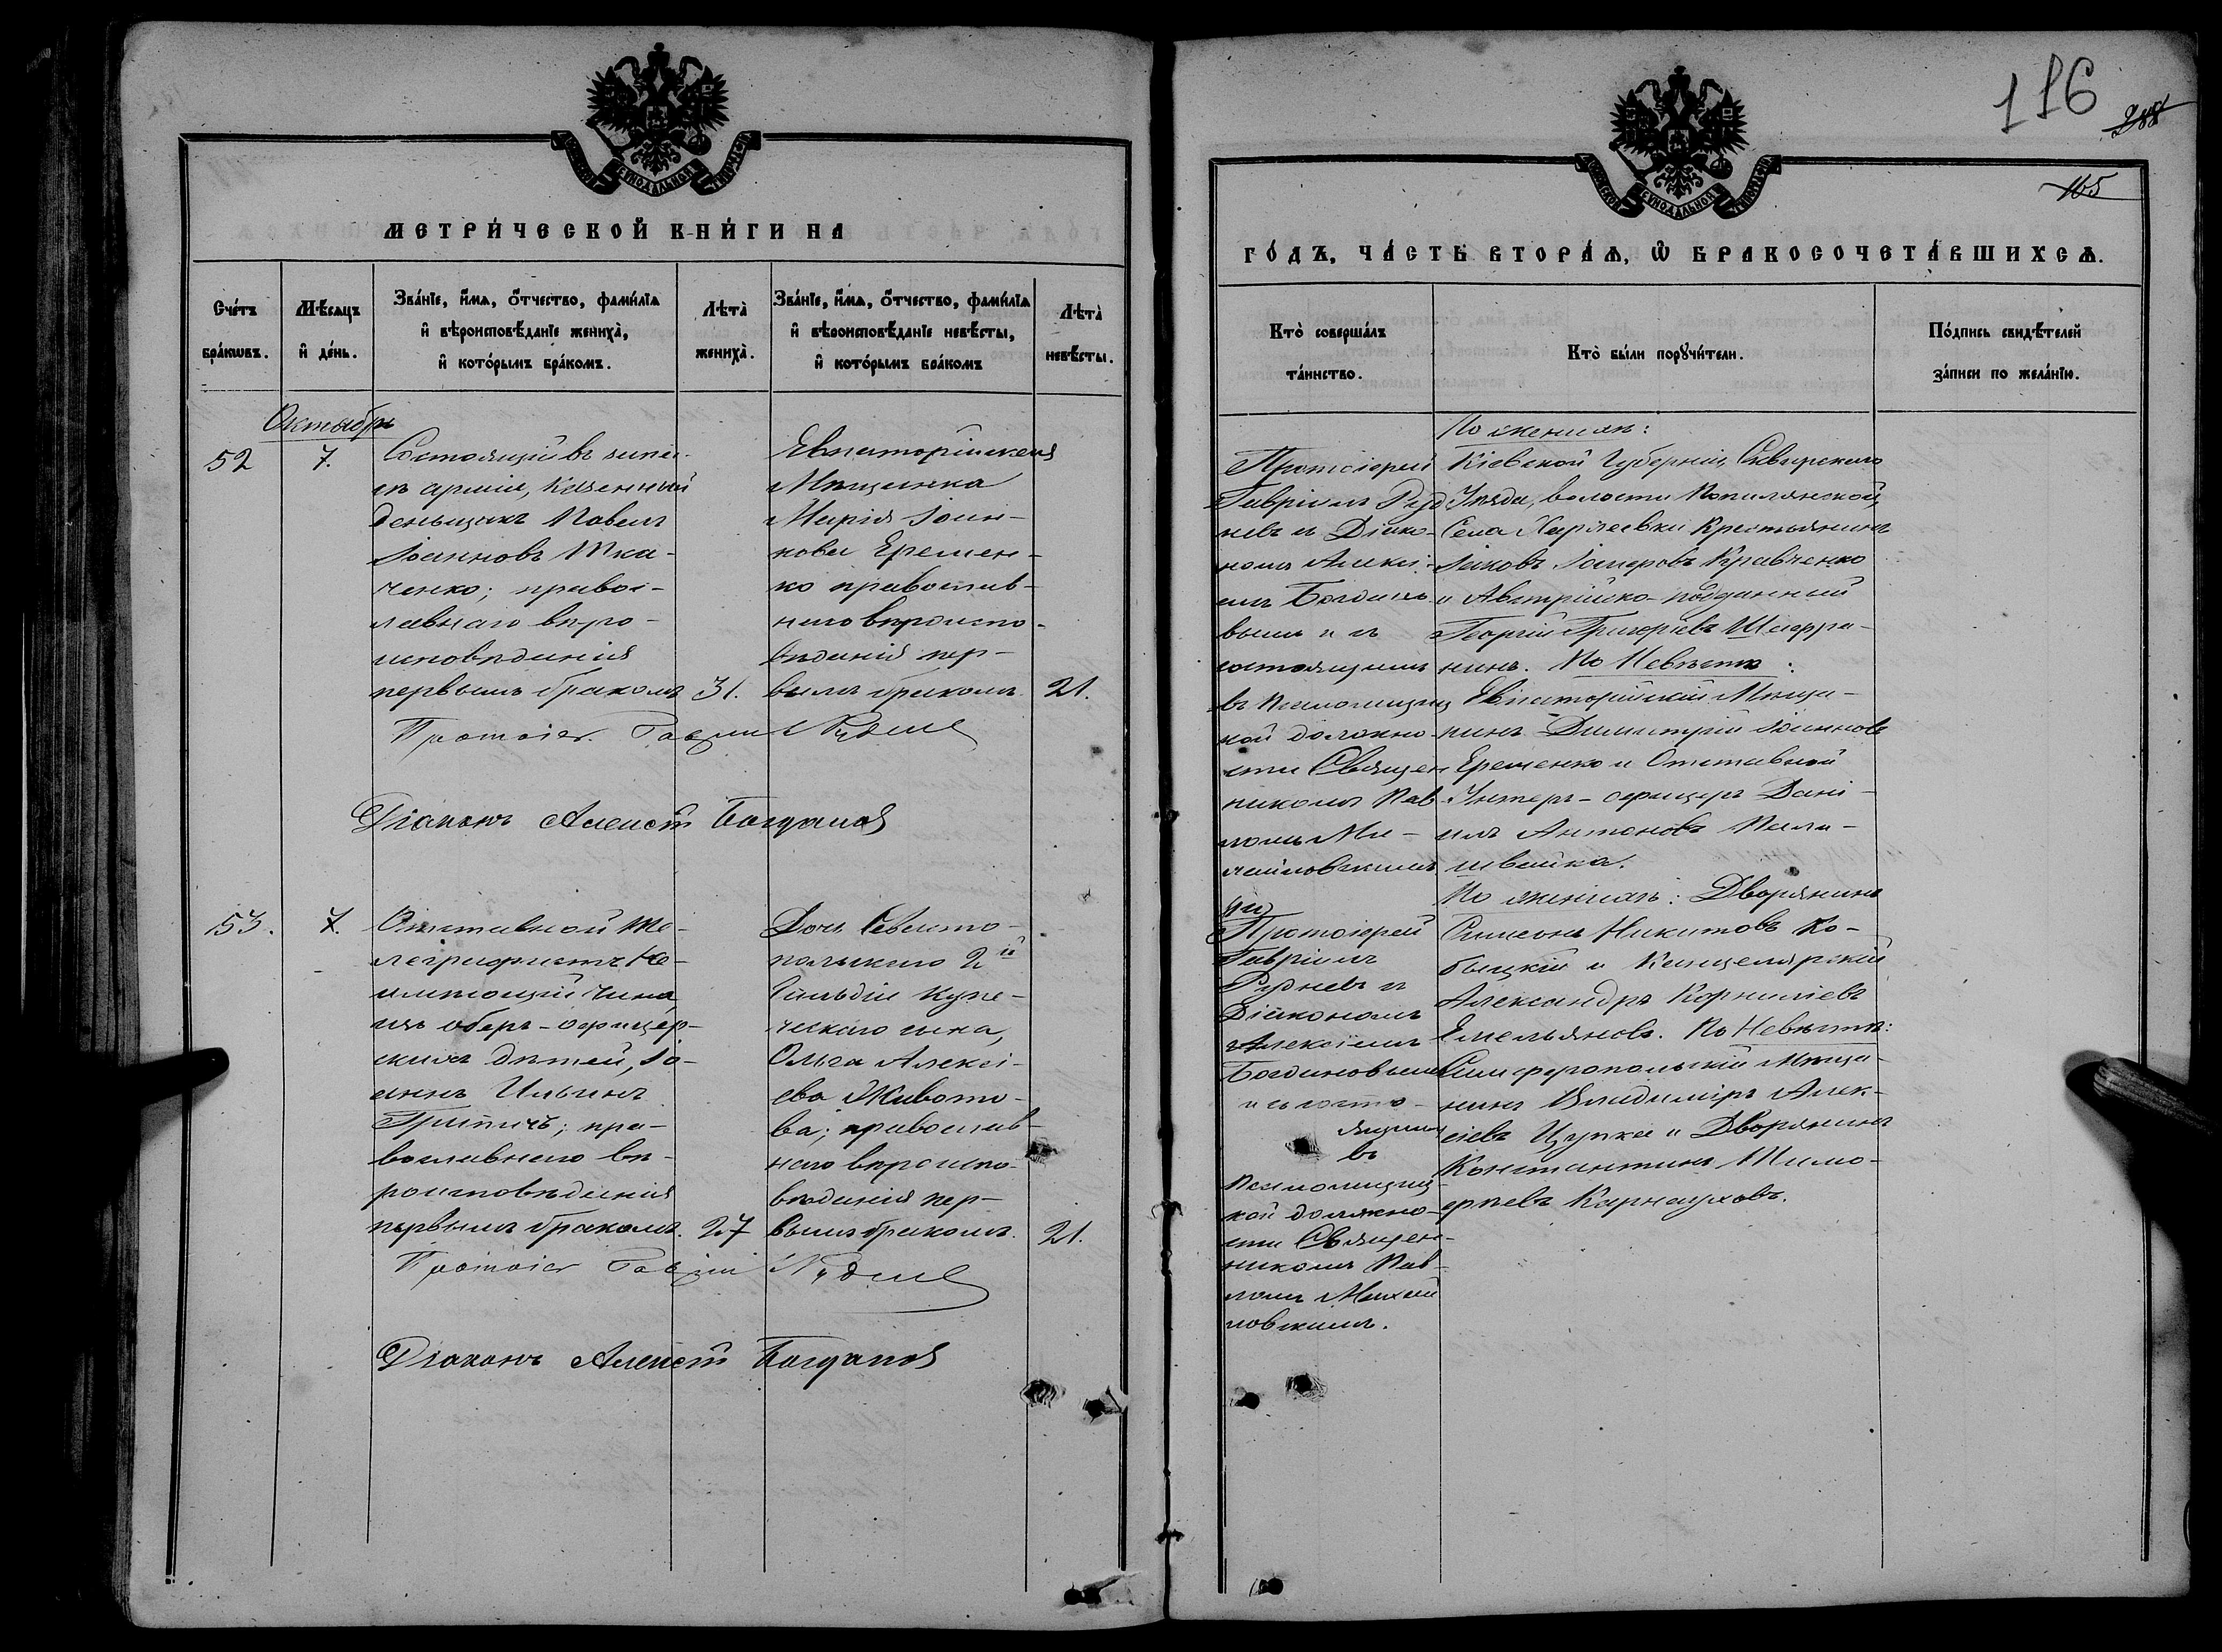 МЕТРИ́ЧЕСКОЙ КНИ́ГИ НА
Сче́тъ бра́кωвъ.
Мѣ́сяцъ и де́нь.
Зва́нїе, и҆́мѧ, ѻ҆́тчество, фами́лїѧ и҆ вѣроисповѣ́данїе жениха̀, и҆ кото́рымъ бра́комъ.
Лѣта̀ жениха̀.
Зва́нїе, и҆́мѧ, ѻ҆́тчество, фами́лїѧ и҆ вѣроисповѣ́данїе невѣ́сты, и҆ кото́рымъ бра́комъ
Лѣта̀ невѣ́сты.
Октябрь
52
7.
Состоящій въ запа-
сѣ арміи, казенный
деньщикъ Павелъ
Іоанновъ Тка-
ченко; правос-
лавнаго вѣро-
исповѣданія
первымъ бракомъ
31.
Евпаторійская
Мѣщанка
Марія Іоан-
нова Еремен-
ко православ-
наго вѣроиспо-
вѣданія пер-
вымъ бракомъ
21.
Діаконъ Алексій Богдановъ
53.
7.
Отставной Те-
леграфистъ не-
имѣющій чина,
изъ оберъ-офицер-
скихъ дѣтей, Іо-
аннъ Ильинъ
пра-
вославнаго вѣ-
роисповѣданія
первымъ бракомъ.
27
Дочь Севасто-
польскаго 2й
Гильдіи купе-
ческаго сына,
Ольга Алексі-
ева Живото-
ва; православ-
наго вѣроиспо-
вѣданія пер-
вымъ бракомъ.
21.
Діаконъ Алексій Богдановъ
116
288
165
ГО́ДЪ, ЧА́СТЬ ВТОРА́Ѧ, Ѽ БРАКОСОЧЕТА́ВШИХСѦ.
Кто̀ соверша́лъ та́инство.
Кто̀ бы́ли порꙋчи́тели.
По́дпись свидѣ́телей за́писи по жела́нїю.
Протоіерей
Гавріилъ Руд-
невъ съ Діако-
номъ Алексі-
емъ Богдано-
вымъ и съ
состоящимъ
въ Псаломщиц-
кой должно-
сти Священ-
никомъ Пав-
ломъ Ми-
хайловскимъ
По женихѣ:
Кіевской Губерніи, Сквирскаго
Уѣзда, волости Попилянской,
Села Харлеевки Крестьянинъ
Іаковъ Кравченко
и Австрійско-подданный
Георгій Григоріевъ Шафра-
нинъ. По Невѣстѣ:
Евпаторійскій Мѣща-
нинъ Димитрій Іоанновъ
Еременко и Отставной
Унтеръ-офицеръ Дані-
илъ Антоновъ Пали-
швайка.
Протоіерей
Гавріилъ
Рудневъ съ
Діакономъ
Алексіемъ
Богдановымъ
и съ состо-
ящимъ
въ
Псаломщиц-
кой должно-
сти Священ-
никомъ Пав-
ломъ Михай-
ловскимъ.
По женихѣ: Дворянинъ
Симеонъ Никитовъ Ко-
быцкій и Канцелярскій
Александръ Корниліевъ
Емельяновъ. По Невѣстѣ:
Симферопольскій Мѣща-
нинъ Владиміръ Алек-
сіевъ Цупка и Дворянинъ
Константинъ Тимо-
фѣевъ Карнауховъ.